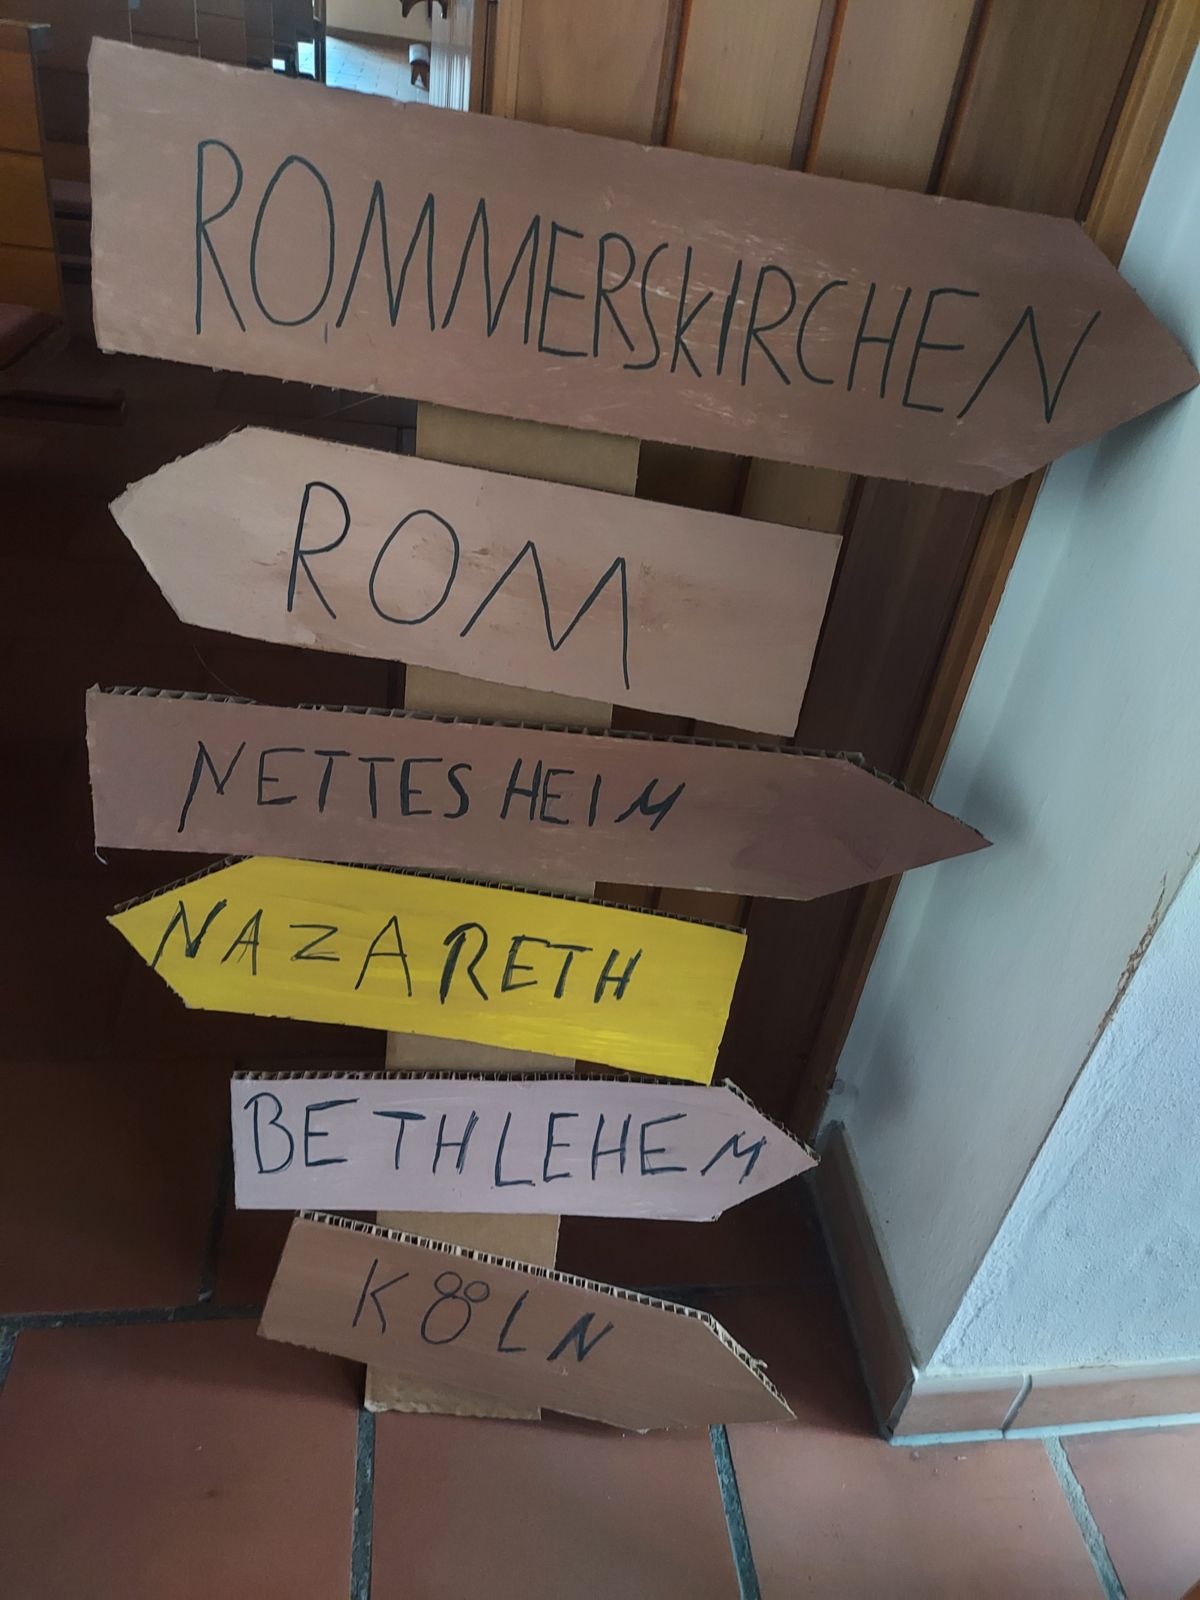 ROMMERSKIRCHEN
ROM
NETTESHEIM
NAZARETH
BETHLEHEM
KÖLN